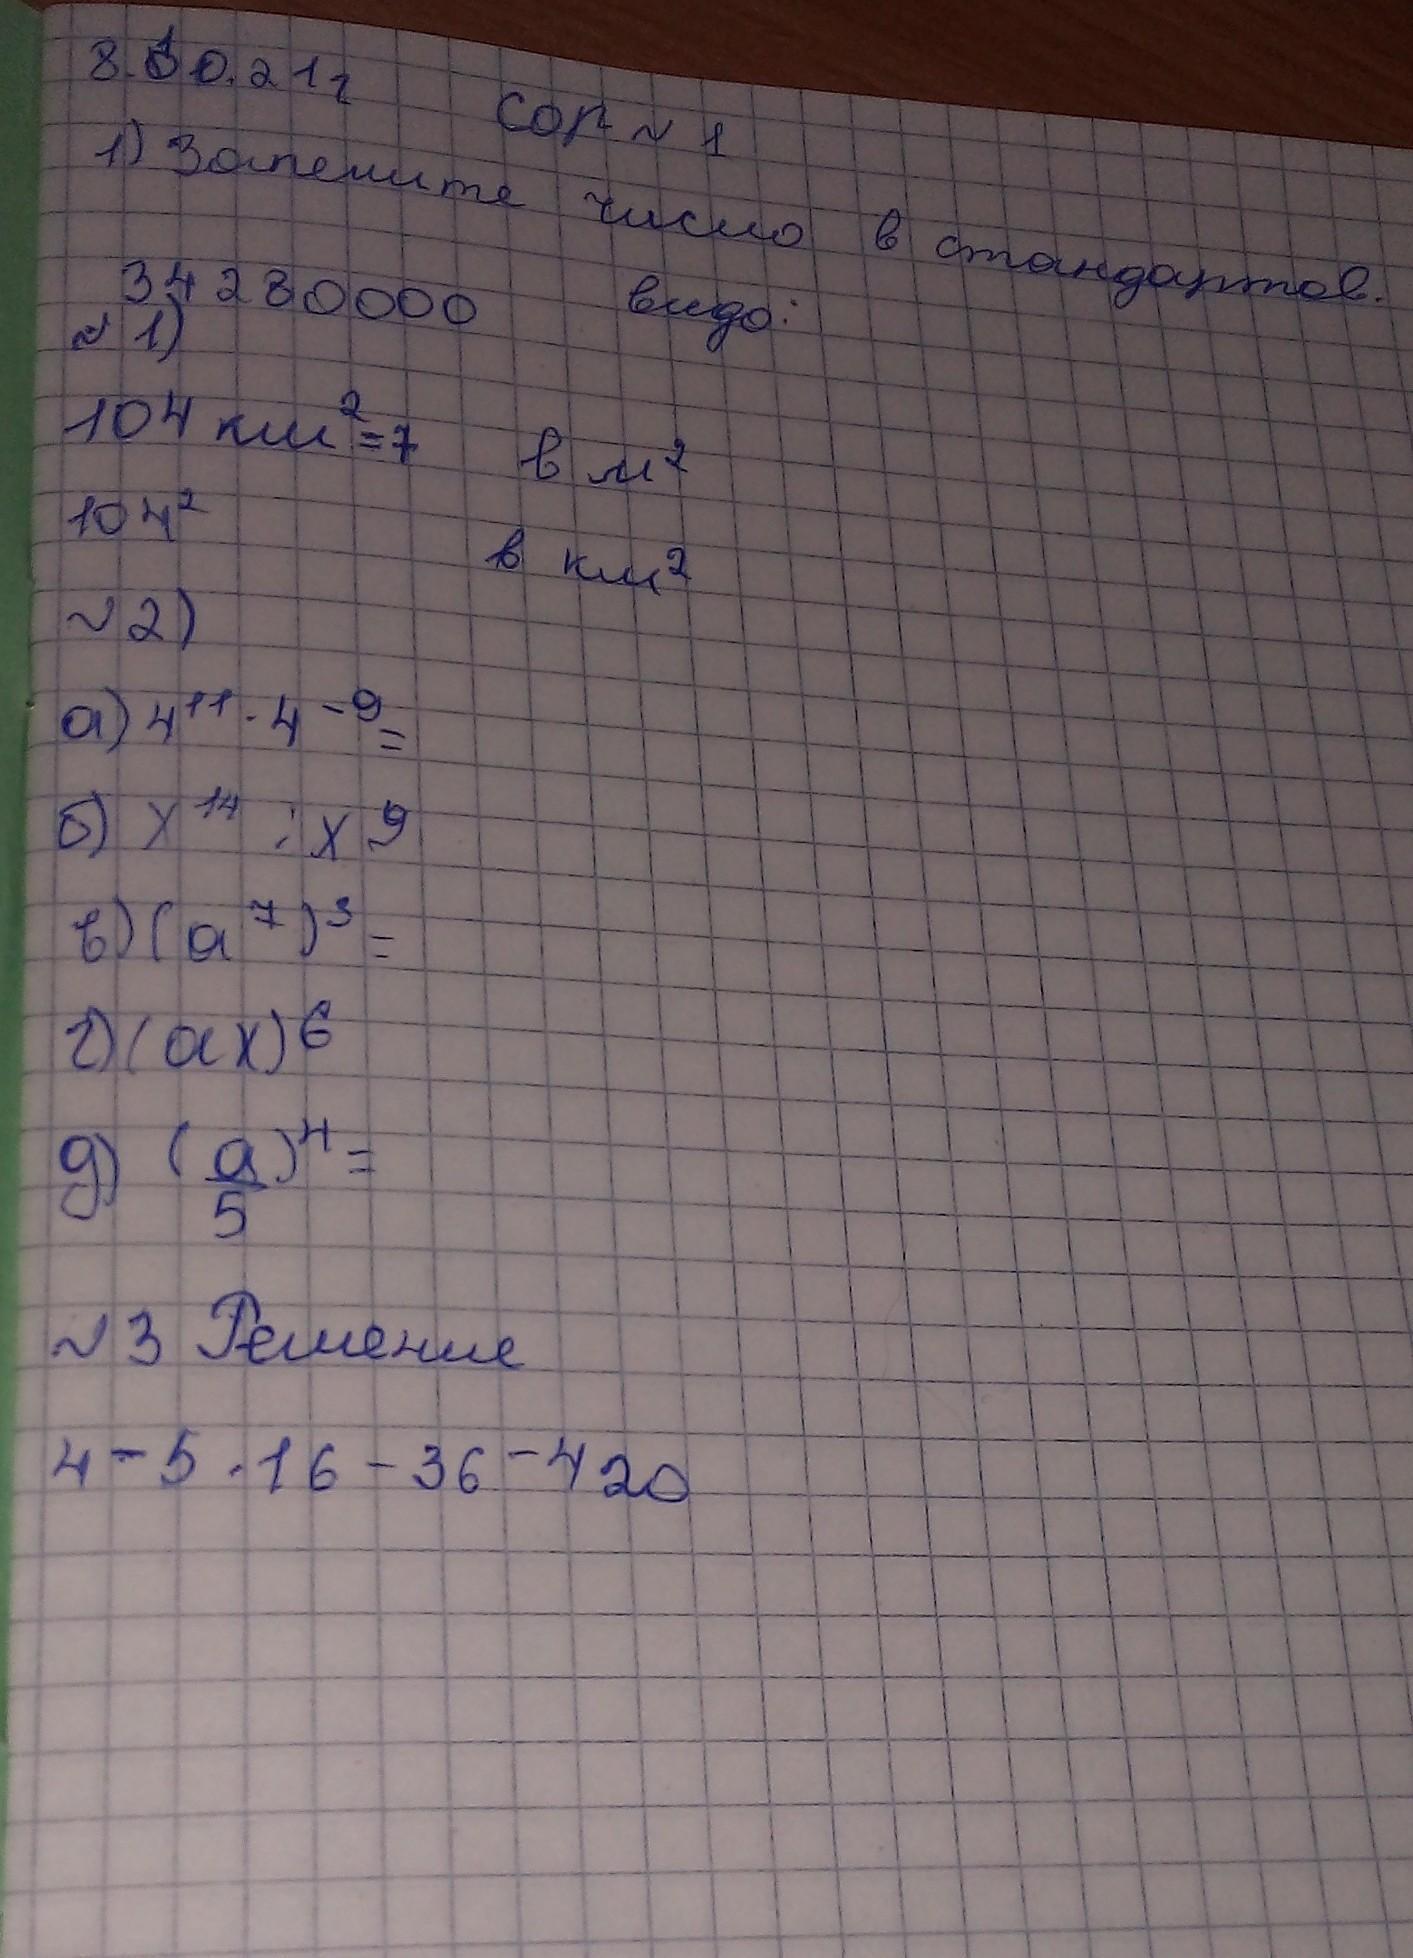 8.10.21г
Сор № 1
1) Запешите число в стандартов.
34280000 видо:
№ 1)
104 км² = 7 в м²
104² в км²
№ 2)
а) 4¹¹ · 4⁻⁹ =
б) x¹⁴ : x⁹
в) (a⁷)³ =
г) (ax)⁶
д) (a/5)⁴ =
№ 3 Решение
4 - 5 · 16 - 36 - 420